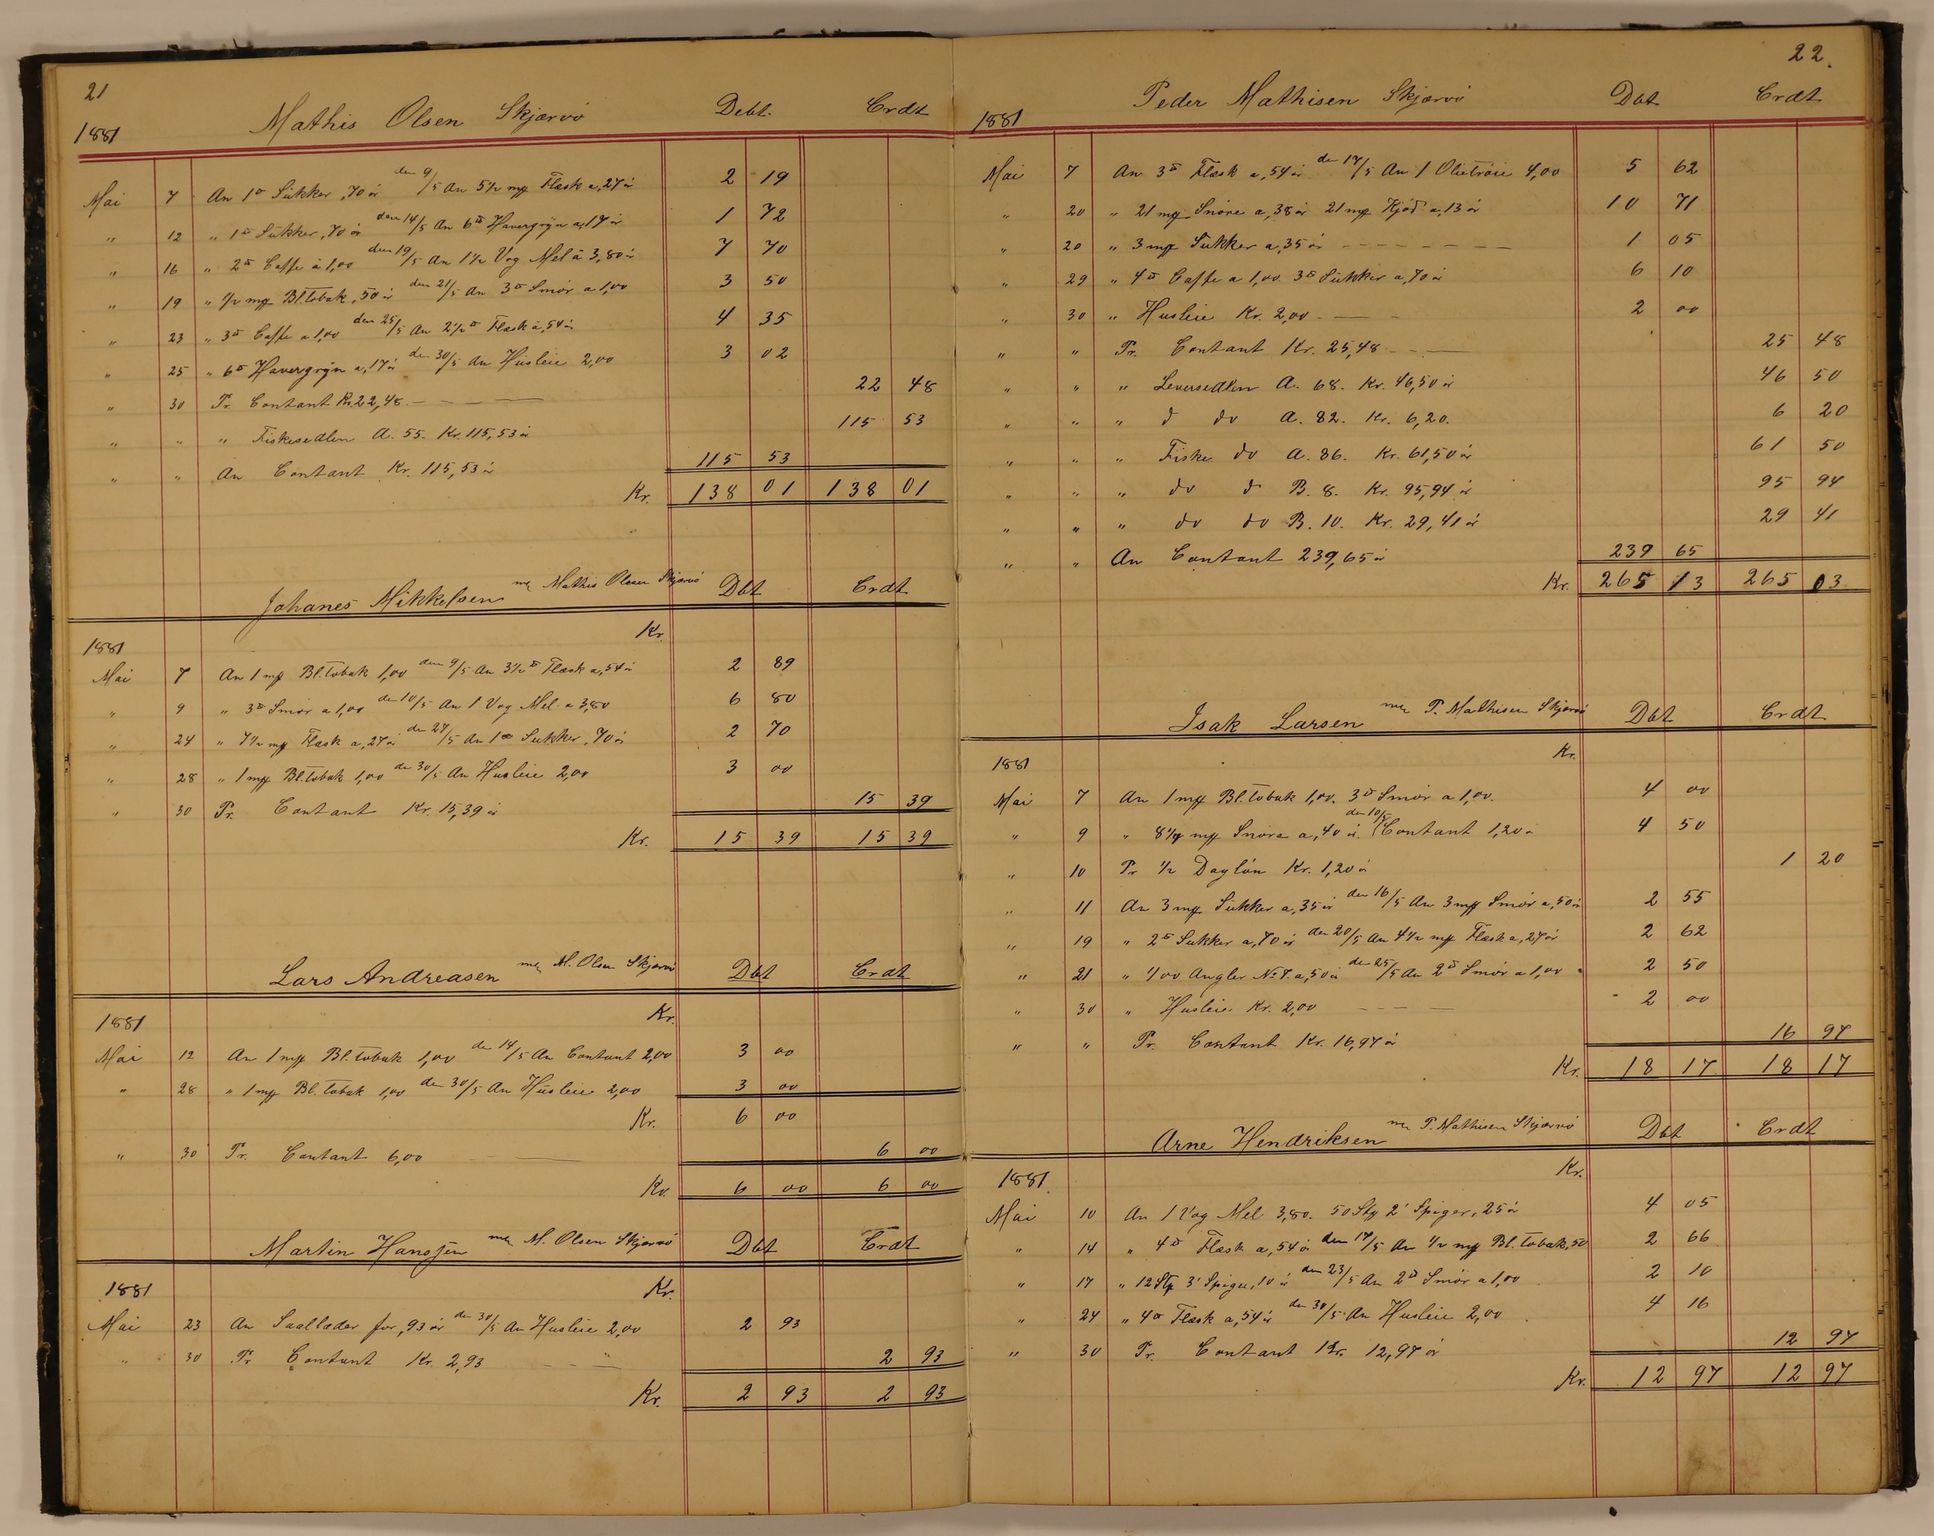 21
1881 Mathis Olsen Skjærvö Debt. Crdt
Mai 7 An 1 ℔ Sukker ,70 ör den 9/5 An 5 1/2 mk Flesk a ,27 ör 2 19
" 12 " 1 ℔ Sukker ,70 ör den 14/5 An 6 ℔ Havergryn a ,17 ör 1 72
" 16 " 2 ℔ Caffe à 1,00 den 19/5 An 1 1/2 Vog Mel à 3,80 ör 7 70
" 19 " 1/2 mk Bl. tobak ,50 ör den 21/5 An 3 ℔ Smör a 1,00 3 50
" 23 " 3 ℔ Caffe a 1,00 den 25/5 An 2 1/2 ℔ Flesk a ,54 ör 4 35
" 25 " 6 ℔ Havergryn a ,17 ör den 30/5 An Husleie 2,00 3 02
" 30 Pr. Contant Kr. 22,48 22 48
" " " Fiskesedlen A. 55. Kr. 115,53 ör 115 53
" " An Contant Kr. 115,53 ör 115 53
Kr. 138 01 138 01
Johanes Mikkelsen Mathis Olsen Skjærvö Dbt Crdt
1881 Kr.
Mai 7 An 1 mk Bl. tobak 1,00 den 9/5 An 3 1/2 ℔ Flesk a ,54 ör 2 89
" 9 " 3 ℔ Smör a 1,00 den 10/5 An 1 Vog Mel a 3,80 6 80
" 24 " 7 1/2 mk Flesk a ,27 ör den 27/5 An 1 ℔ Sukker ,70 ör 2 70
" 28 " 1 mk Bl. tobak 1,00 den 30/5 An Husleie 2,00 3 00
" 30 Pr. Contant Kr. 15,39 ör 15 39
Kr. 15 39 15 39
Lars Andreasen M. Olsen Skjærvö Dbt Crdt
1881 Kr.
Mai 12 An 1 mk Bl. tobak 1,00 den 14/5 An Contant 2,00 3 00
" 28 " 1 mk Bl. tobak 1,00 den 30/5 An Husleie 2,00 3 00
Kr. 6 00
" 30 Pr. Contant 6,00 6 00
Kr. 6 00 6 00
Martin Hanssen M. Olsen Skjærvö Dbt Crdt
1881 Kr.
Mai 23 An Saallæder for ,93 ör den 30/5 An Husleie 2,00 2 93
" 30 Pr Contant Kr. 2,93 2 93
Kr. 2 93 2 93
22.
1881 Peder Mathisen Skjærvö Dbt Crdt
Mai 7 An 3 ℔ Flesk a ,54 ör den 17/5 An 1 Olietröie 4,00 5 62
" 20 " 21 mk Snöre a ,38 ör 21 mk Kjöd a ,13 ör 10 71
" 20 " 3 mk Sukker a ,35 ör 1 05
" 29 " 4 ℔ Caffe a 1,00 3 ℔ Sukker a ,70 ör 6 10
" 30 " Husleie Kr. 2,00 2 00
" " Pr. Contant Kr. 25,48 25 48
" " " Leversedlen A. 68. Kr. 46,50 ör 46 50
" " " d do A. 82. Kr. 6,20. 6 20
" " " Fiske do A. 86. Kr. 61,50 ör 61 50
" " " do d B. 8. Kr. 95,94 ör 95 94
" " " do do B. 10. Kr. 29,41 ör 29 41
" " An Contant 239,65 ör 239 65
Kr. 265 13 265 03
Isak Larsen P. Mathisen Skjærvö Dbt Crdt
1881 Kr.
Mai 7 An 1 mk Bl. tobak 1,00. 3 ℔ Smör a 1,00. 4 00
" 9 " 8 1/4 mk Snöre a ,40 ör den 10/5 Contant 1,20 4 50
" 10 Pr 1/2 Daglön Kr. 1,20 ör 1 20
" 11 An 3 mk Sukker a ,35 ör den 16/5 An 3 mk Smör a ,50 ör 2 55
" 19 " 2 ℔ Sukker a ,70 ör den 20/5 An 4 1/2 mk Flesk a ,27 ör 2 62
" 21 " 1/00 Angler No 7. a ,50 ör den 25/5 An 2 ℔ Smör a 1,00 2 50
" 30 " Husleie Kr. 2,00 2 00
" " Pr. Contant Kr. 16,97 ör 16 97
Kr. 18 17 18 17
Arne Hendriksen P. Mathisen Skjærvö Dbt Crdt
1881 Kr.
Mai 10 An 1 Vog Mel 3,80. 50 Stk 2" Spiger ,25 ör 4 05
" 14 " 4 ℔ Flesk a ,54 ör den 17/5 An 1/2 mk Bl. tobak ,50 2 66
" 17 " 12 Stk 3" Spiger ,10 ör den 23/5 An 2 ℔ Smör a 1,00 2 10
" 24 " 4 ℔ Flesk a ,54 ör den 30/5 An Husleie 2,00 4 16
" 30 Pr. Contant Kr. 12,97 ör 12 97
Kr. 12 97 12 97